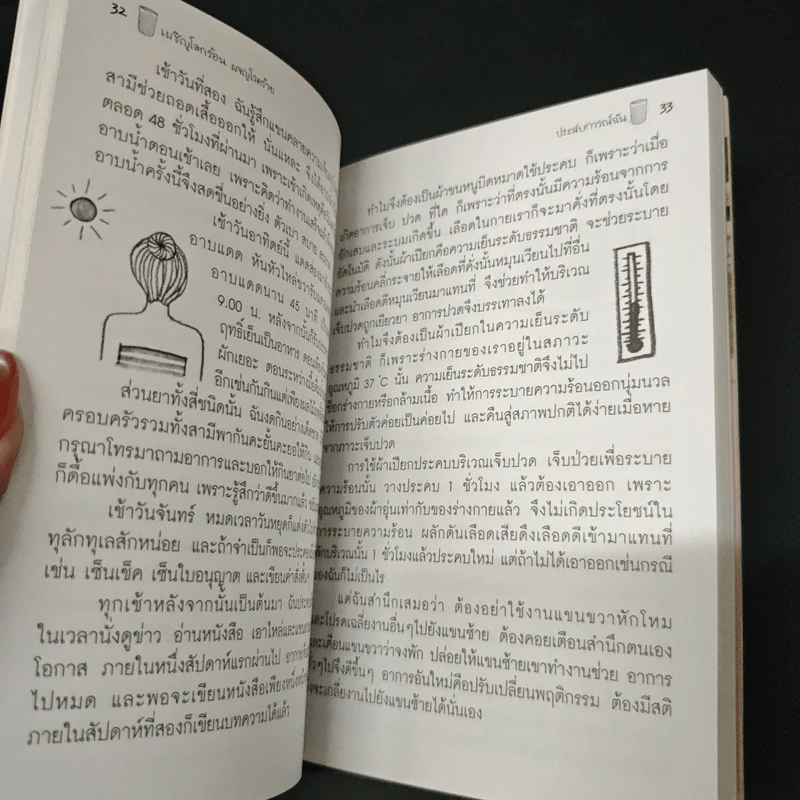 32
เผชิญโลกร้อน ผจญโรคร้าย
เช้าวันที่สอง ฉันรู้สึกแขนคลายความ
สามีช่วยถอดเสื้อออกให้ นั่นแหละ จึงได้
ตลอด 48 ชั่วโมงที่ผ่านมา เพราะเช้าเกิดเหตุ
อาบน้ำตอนเช้าเลย เพราะคิดว่าทำงานเสร็จแล้ว
อาบน้ำครั้งนี้จึงสดชื่นอย่างยิ่ง ตัวเบา สบาย
เช้าวันอาทิตย์นี้ แดดส่อง
อาบแดด หันหัวไหล่ขวารับแสง
อาบแดดนาน 45 นาที
9.00 น. หลังจากนั้นก็รับ
ฤทธิ์เย็นเป็นอาหาร ตอนเที่ยง
ผักเยอะ ตอนระหว่างมื้อ
อีกเช่นกันกินแต่เพียงผลไม้
ส่วนยาทั้งสี่ชนิดนั้น ฉันงดกินอย่างเด็ดขาด
ครอบครัวรวมทั้งสามีพากันคะยั้นคะยอให้กิน
กรุณาโทรมาถามอาการและบอกให้กินยาต่อไป
ก็ดื้อแพ่งกับทุกคน เพราะรู้สึกว่าดีขึ้นมากแล้ว
เช้าวันจันทร์ หมดเวลาวันหยุดก็แต่งตัว
ทุลักทุเลสักหน่อย และถ้าจำเป็นก็พอจะประคอง
เช่น เซ็นเช็ค เซ็นใบอนุญาต และเขียนคำสั่ง
ทุกเช้าหลังจากนั้นเป็นต้นมา ฉันประคบ
ในเวลานั่งดูข่าว อ่านหนังสือ เอาไหล่และแขน
โอกาส ภายในหนึ่งสัปดาห์แรกผ่านไป อาการ
ไปหมด และพอจะเขียนหนังสือเพียงหนึ่งหน้า
ภายในสัปดาห์ที่สองก็เขียนบทความได้แล้ว
ประสบการณ์ฉัน
33
ทำไมจึงต้องเป็นผ้าขนหนูบิดหมาดใช้ประคบ ก็เพราะว่าเมื่อ
เกิดอาการเจ็บ ปวด ที่ใด ก็เพราะว่าที่ตรงนั้นมีความร้อนจากการ
อักเสบและระบมเกิดขึ้น เลือดในกายเราก็จะมาคั่งที่ตรงนั้นโดย
อัตโนมัติ ดังนั้นผ้าเปียกคือความเย็นระดับธรรมชาติ จะช่วยระบาย
ความร้อนคลี่กระจายให้เลือดที่คั่งนั้นหมุนเวียนไปที่อื่น
และนำเลือดดีหมุนเวียนมาแทนที่ จึงช่วยทำให้บริเวณ
เจ็บปวดถูกเยียวยา อาการปวดจึงบรรเทาลงได้
ทำไมจึงต้องเป็นผ้าเปียกในความเย็นระดับ
ธรรมชาติ ก็เพราะร่างกายของเราอยู่ในสภาวะ
อุณหภูมิ 37 °C นั้น ความเย็นระดับธรรมชาติจึงไม่ไป
ช็อกร่างกายหรือกล้ามเนื้อ ทำให้การระบายความร้อนออกนุ่มนวล
ให้การปรับตัวค่อยเป็นค่อยไป และคืนสู่สภาพปกติได้ง่ายเมื่อหาย
จากภาวะเจ็บปวด
การใช้ผ้าเปียกประคบบริเวณเจ็บปวด เจ็บป่วยเพื่อระบาย
ความร้อนนั้น วางประคบ 1 ชั่วโมง แล้วต้องเอาออก เพราะ
อุณหภูมิของผ้าอุ่นเท่ากับของร่างกายแล้ว จึงไม่เกิดประโยชน์ใน
การระบายความร้อน ผลักดันเลือดเสียดึงเลือดดีเข้ามาแทนที่
พักบริเวณนั้น 1 ชั่วโมงแล้วประคบใหม่ แต่ถ้าไม่ได้เอาออกเช่นกรณี
ของฉันก็ไม่เป็นไร
แต่ฉันสำนึกเสมอว่า ต้องอย่าใช้งานแขนขวาหักโหม
และโปรดเฉลี่ยงานอื่นๆไปยังแขนซ้าย ต้องคอยเตือนสำนึกตนเอง
และเตือนแขนขวาว่าจงพัก ปล่อยให้แขนซ้ายเขาทำงานช่วย อาการ
ทั่วๆไปจึงดีขึ้นๆ อาการอันใหม่คือปรับเปลี่ยนพฤติกรรม ต้องมีสติ
จึงจะเกลี่ยงานไปยังแขนซ้ายได้นั่นเอง